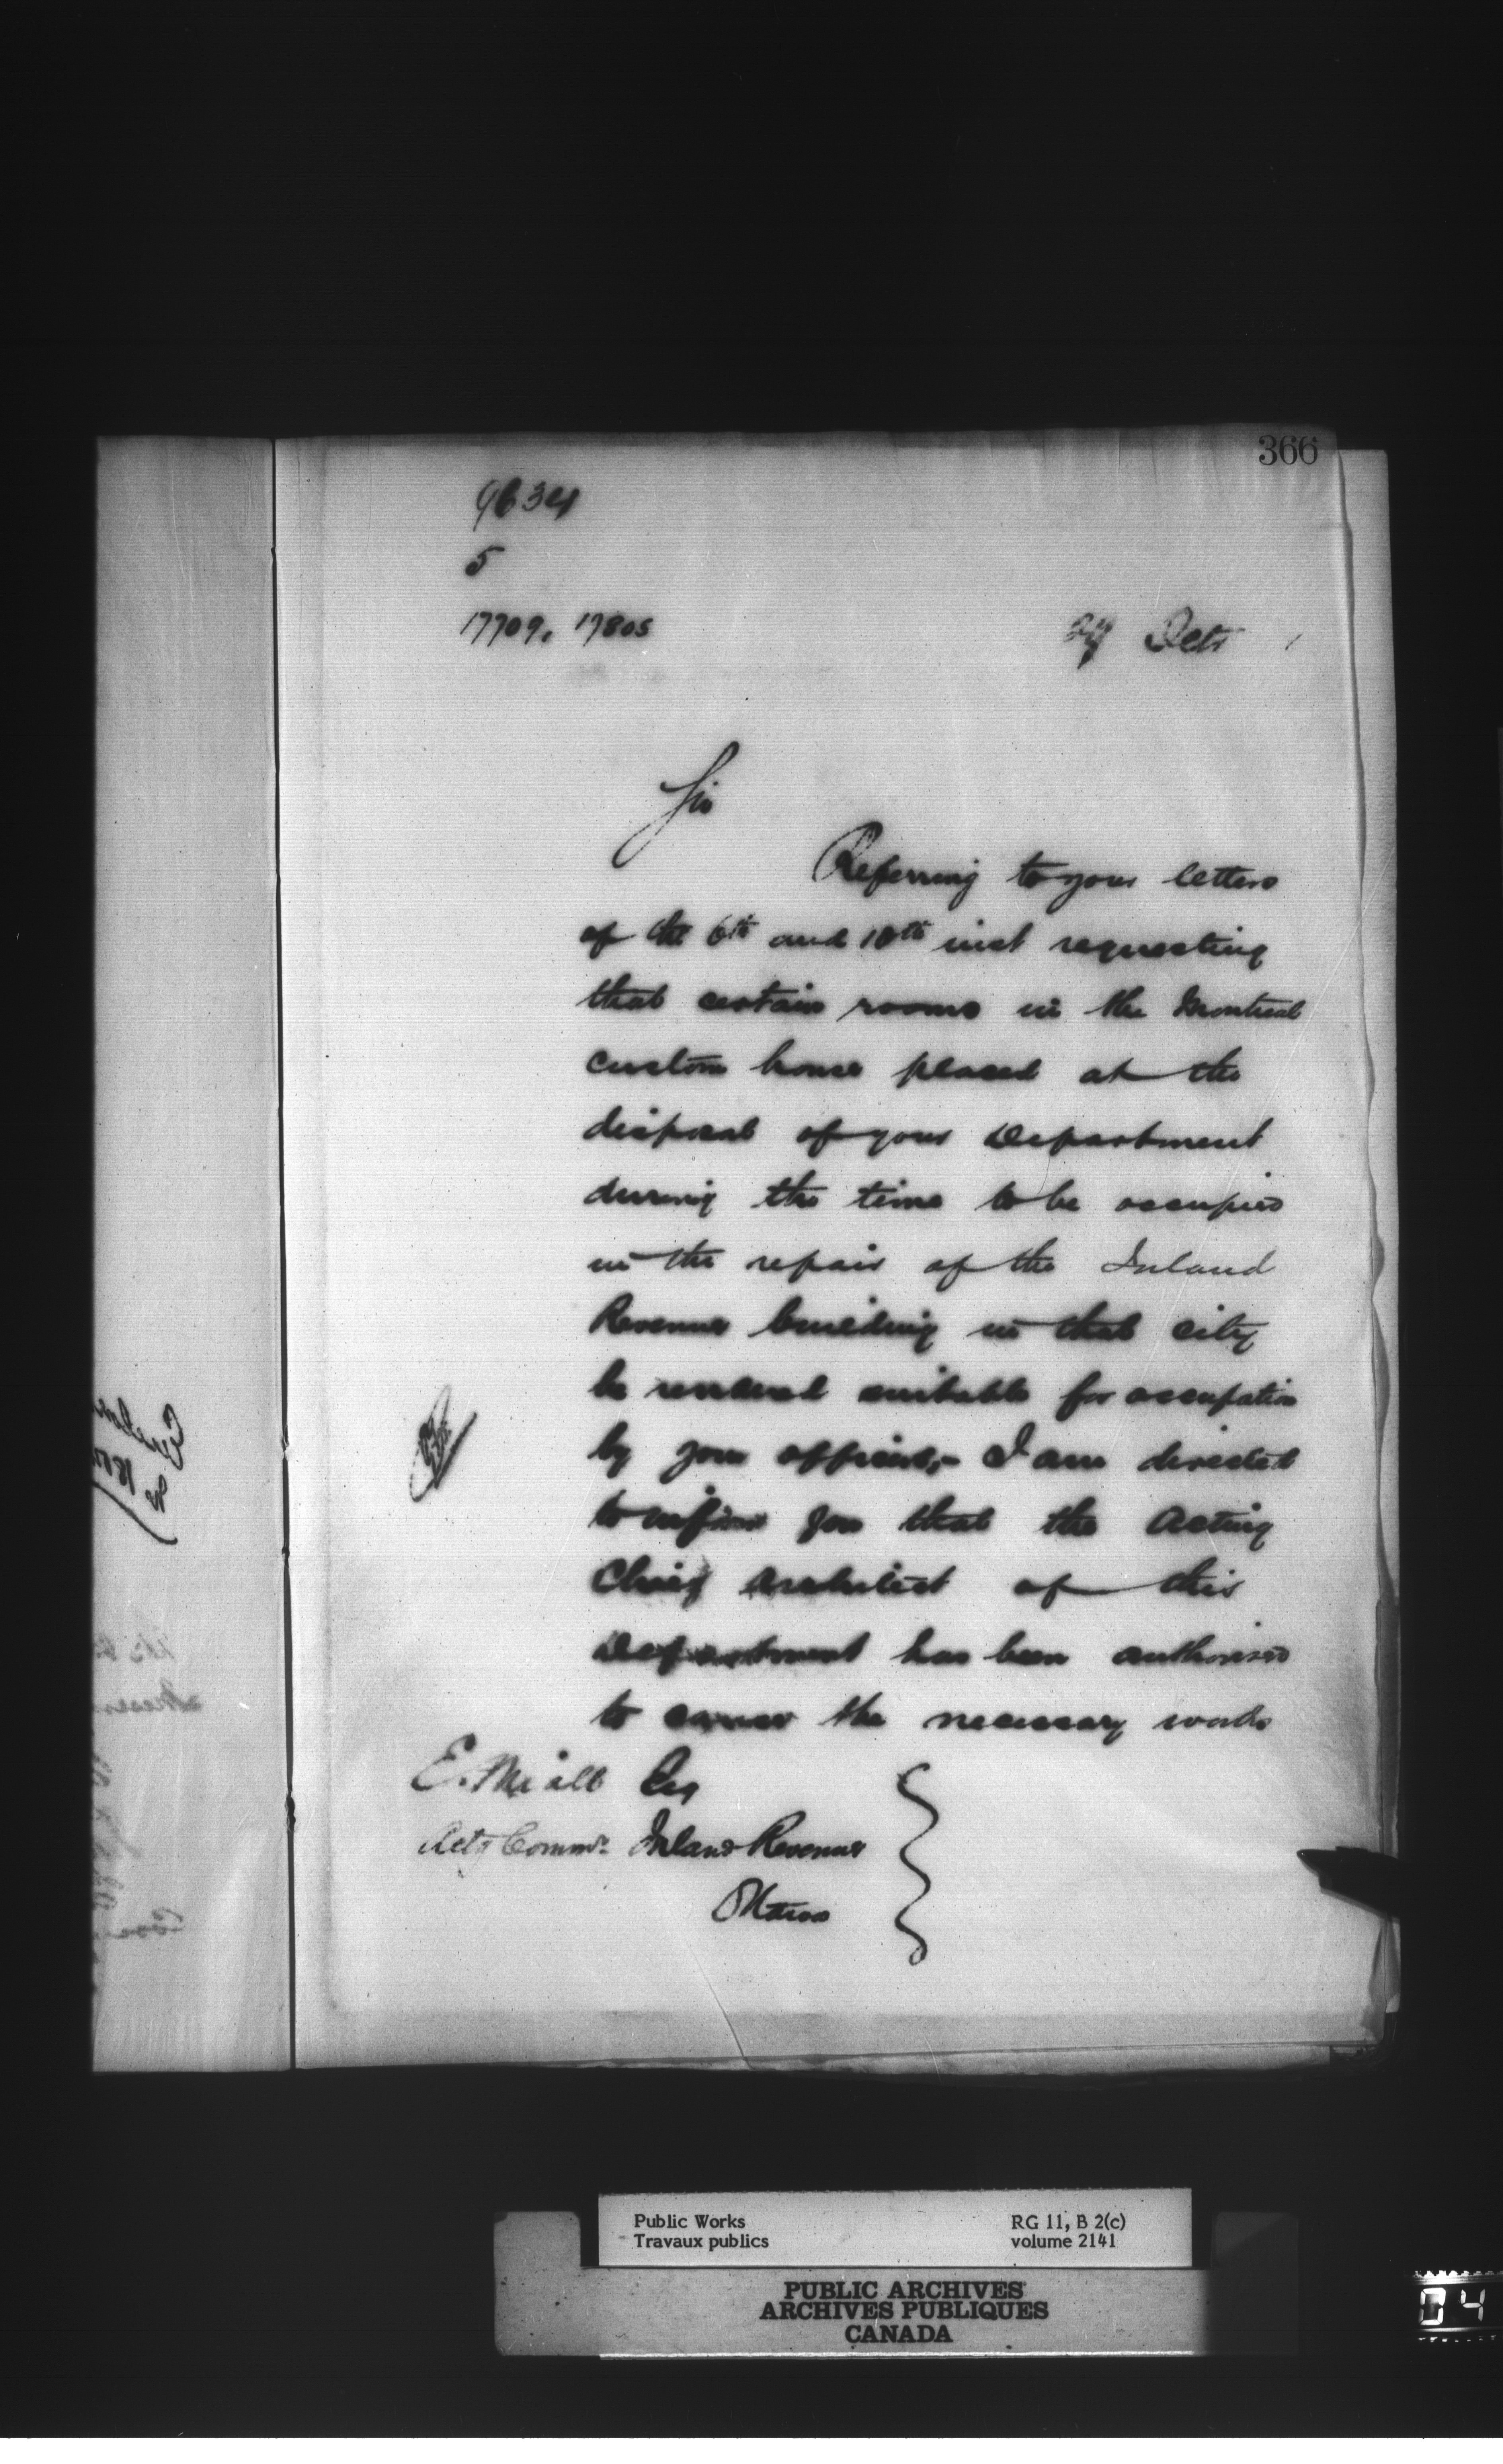 366
9634
5
17709. 17805
Octr
Sir
Referring to your letters
of the 6th and 10th inst requesting
that certain rooms in the Montreal
custom house placed at the
disposal of your Department
during the time to be occupied
in the repair of the Inland
Revenue building in that city
be rendered suitable for occupation
by your officials,- I am directed
to inform you that the Acting
Chief Architect of this
Department has been authorised
to cause the necessary works
E. Miall Esq
Actg Commr. Inland Revenue
Ottawa
Public Works
Travaux publics
RG 11, B 2(c)
volume 2141
PUBLIC ARCHIVES
ARCHIVES PUBLIQUES
CANADA
04